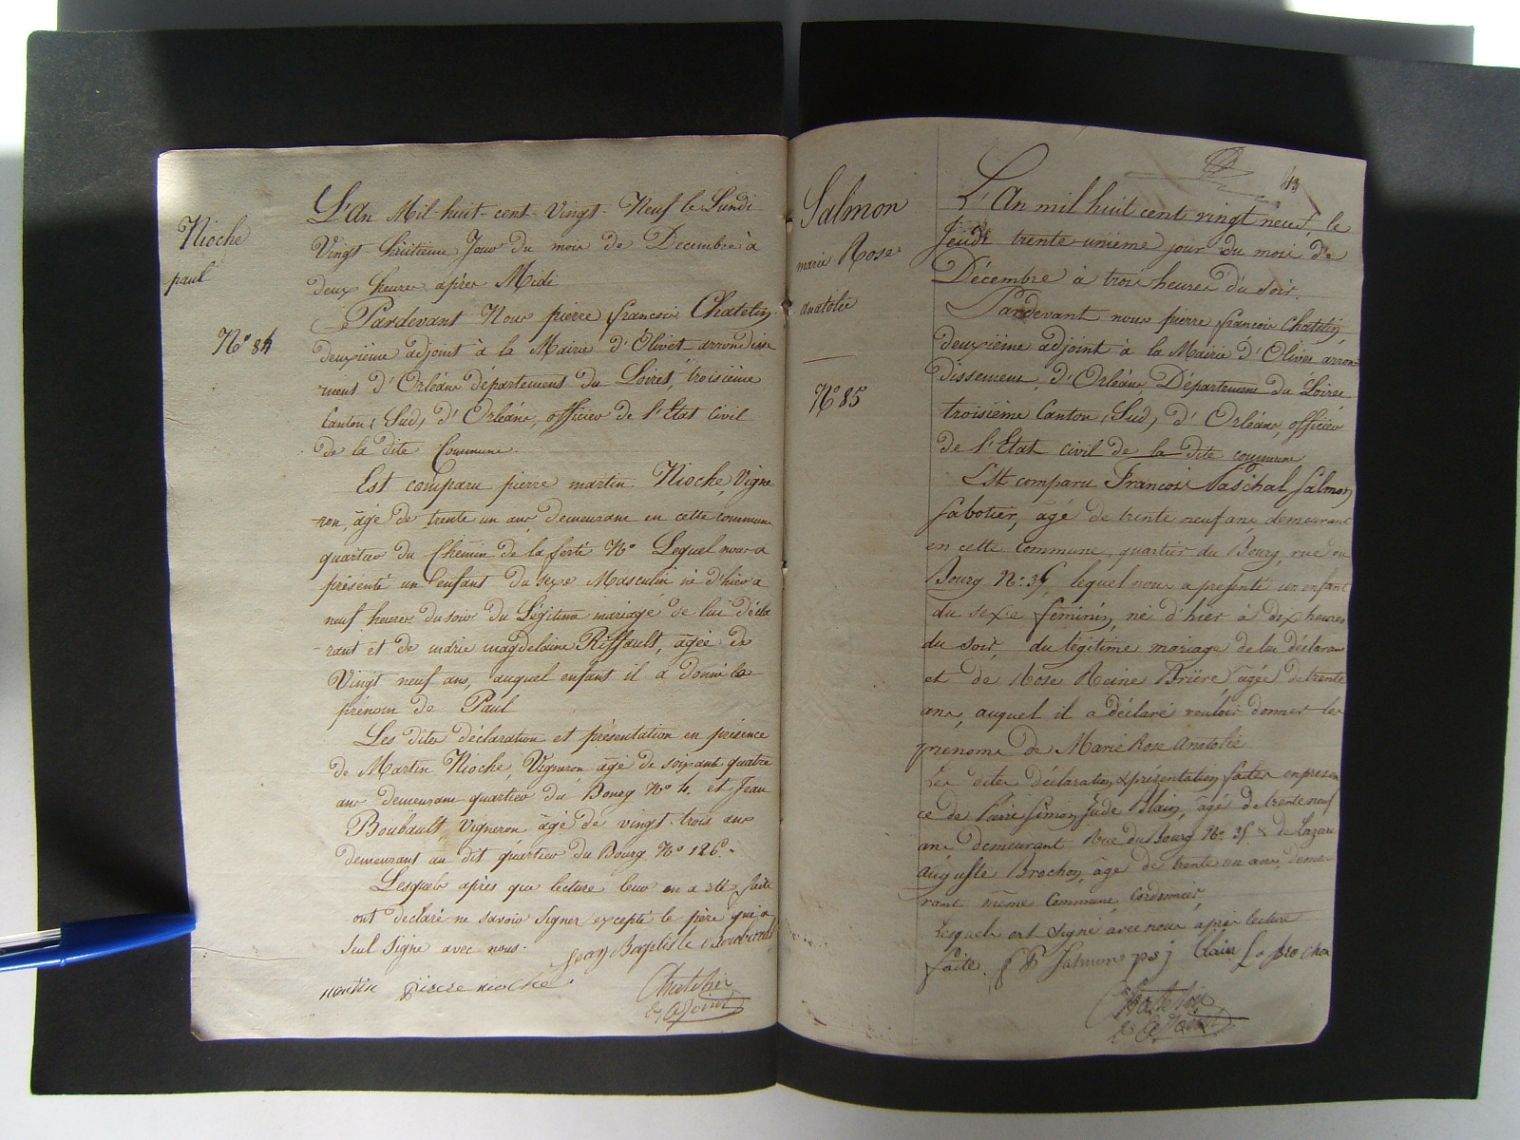 Nioche
paul
N° 84
L'An Mil huit-cent-Vingt-Neuf le Lundi
Vingt huitieme Jour du mois de Decembre à
deux heures après Midi
Pardevant Nous pierre françois Chatelin
deuxième adjoint à la Mairie d'Olivet arrondisse
ment d'Orléans département du Loiret, troisième
Canton (Sud) d'Orléans, officier de l'Etat Civil
de la dite Commune.
Est comparu pierre martin Nioche, Vigne
ron, âgé de trente un ans demeurant en cette commune
quartier du Chemin de la ferté N° Lequel nous a
présenté un enfant du sexe Masculin né d'hier a
neuf heures du soir du Légitime mariage de lui décla
rant et de marie magdelaine Riffault, agée de
Vingt neuf ans, auquel enfant il a donné le
prénom de Paul
Les dites déclaration et présentation en présence
de Martin Nioche, Vigneron âgé de soixante quatre
ans demeurant quartier du Bourg N° 4. et Jean
Boubault Vigneron âgé de vingt-trois ans
demeurant au dit quartier du Bourg N° 126.
Lesquels après que lecture leur en a été faite
ont déclaré ne savoir signer excepté le père qui a
seul signé avec nous. Jean Baptiste
martin pierre nioche
Chatelin
adjoint
13
Salmon
marie Rose
anatolie
N° 85
L'An mil huit cent vingt neuf, le
Jeudi trente-unième jour du mois de
Décembre à trois heures du soir.
Pardevant nous pierre françois Chatelin
deuxième adjoint à la Mairie d'Olivet arron
dissement d'Orléans Département du Loiret
troisième Canton (Sud) d'Orléans, officier
de l'Etat civil de la dite commune
Est comparu François Paschal Salmon
Sabotier, agé de trente neuf ans demeurant
en cette Commune, quartier du Bourg, rue du
Bourg N° 35, lequel nous a présenté un enfant
du sexe féminin, né d'hier à dix heures
du soir, du légitime mariage de lui déclarant
et de Rose Reine Brière agée de trente
ans, auquel il a déclaré vouloir donner les
prenoms de Marie Rose Anatolie
Les dites déclaration & présentation faites en presen
ce de Pierre Simon Jude Blain, agé de trente neuf
ans demeurant Rue du Bourg N° 35 & de Lazare
Auguste Brochon, âgé de trente un ans, demeu
rant même Commune, Cordonnier,
Lesquels ont signé avec nous après lecture
faite. f P Salmon p s j Blain L a Brochon
Chatelin
adjoint